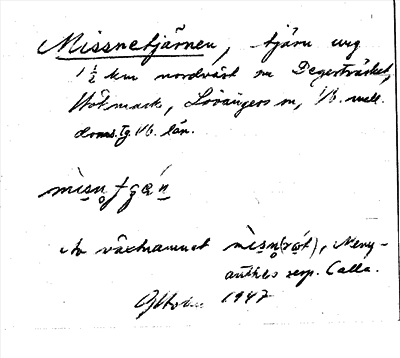 Missnetjärnen, tjärn ung.
1½ km nordväst om Degerträsket,
Hötmark, Lövångers sn, Vb. mell.
doms. tg. Vb. län.
mìsn̥ʈɕæ̀n
Av växtnamnet mìsn̥(røt), Meny-
anthes resp. Calla.
1947